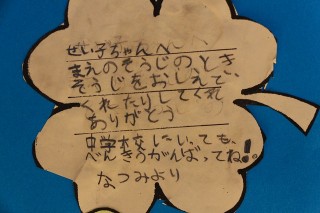 せい子ちゃんへ
まえのそうじのとき
そうじをおしえて、
くれたりしてくれ
ありがとう
中学校にいっても、
べんきょうがんばってね!!
なつみより